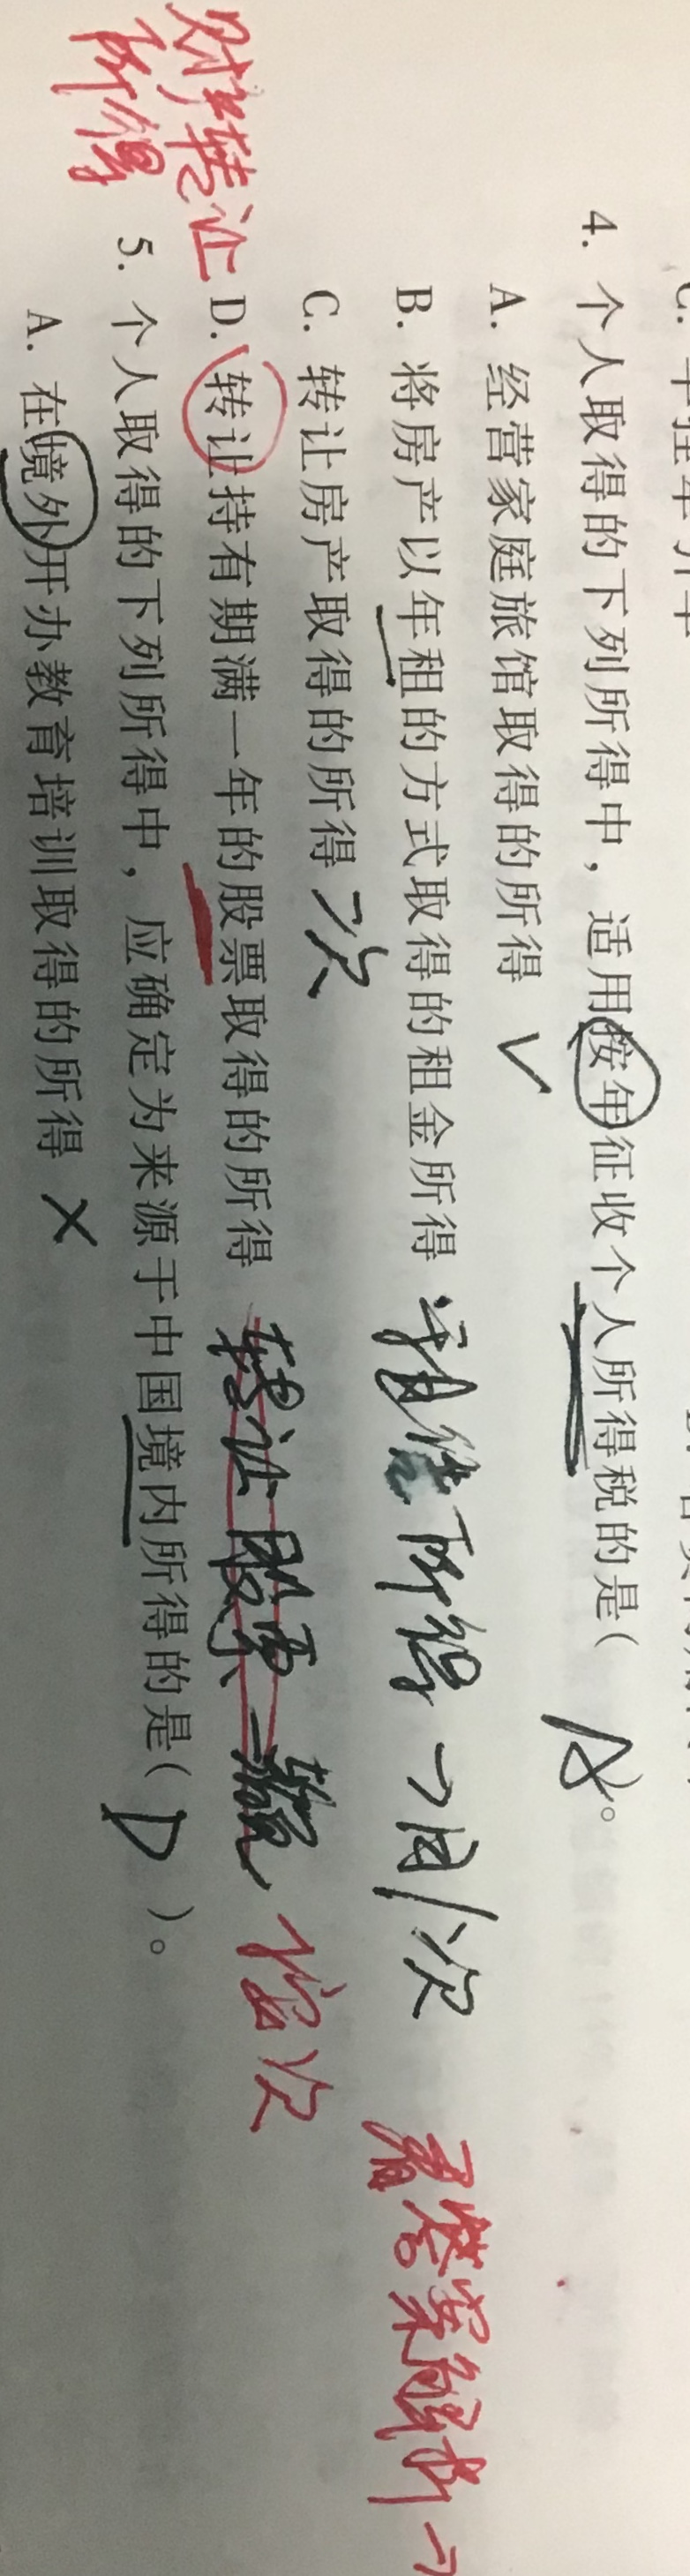 4. 个人取得的下列所得中，适用按年征收个人所得税的是( A )。
A. 经营家庭旅馆取得的所得 ✓
B. 将房产以年租的方式取得的租金所得 所得→月/次 看答案解析→
C. 转让房产取得的所得 次
D. 转让持有期满一年的股票取得的所得 转让股票 按次
财产转让
所得
5. 个人取得的下列所得中，应确定为来源于中国境内所得的是( D )。
A. 在境外开办教育培训取得的所得 ×